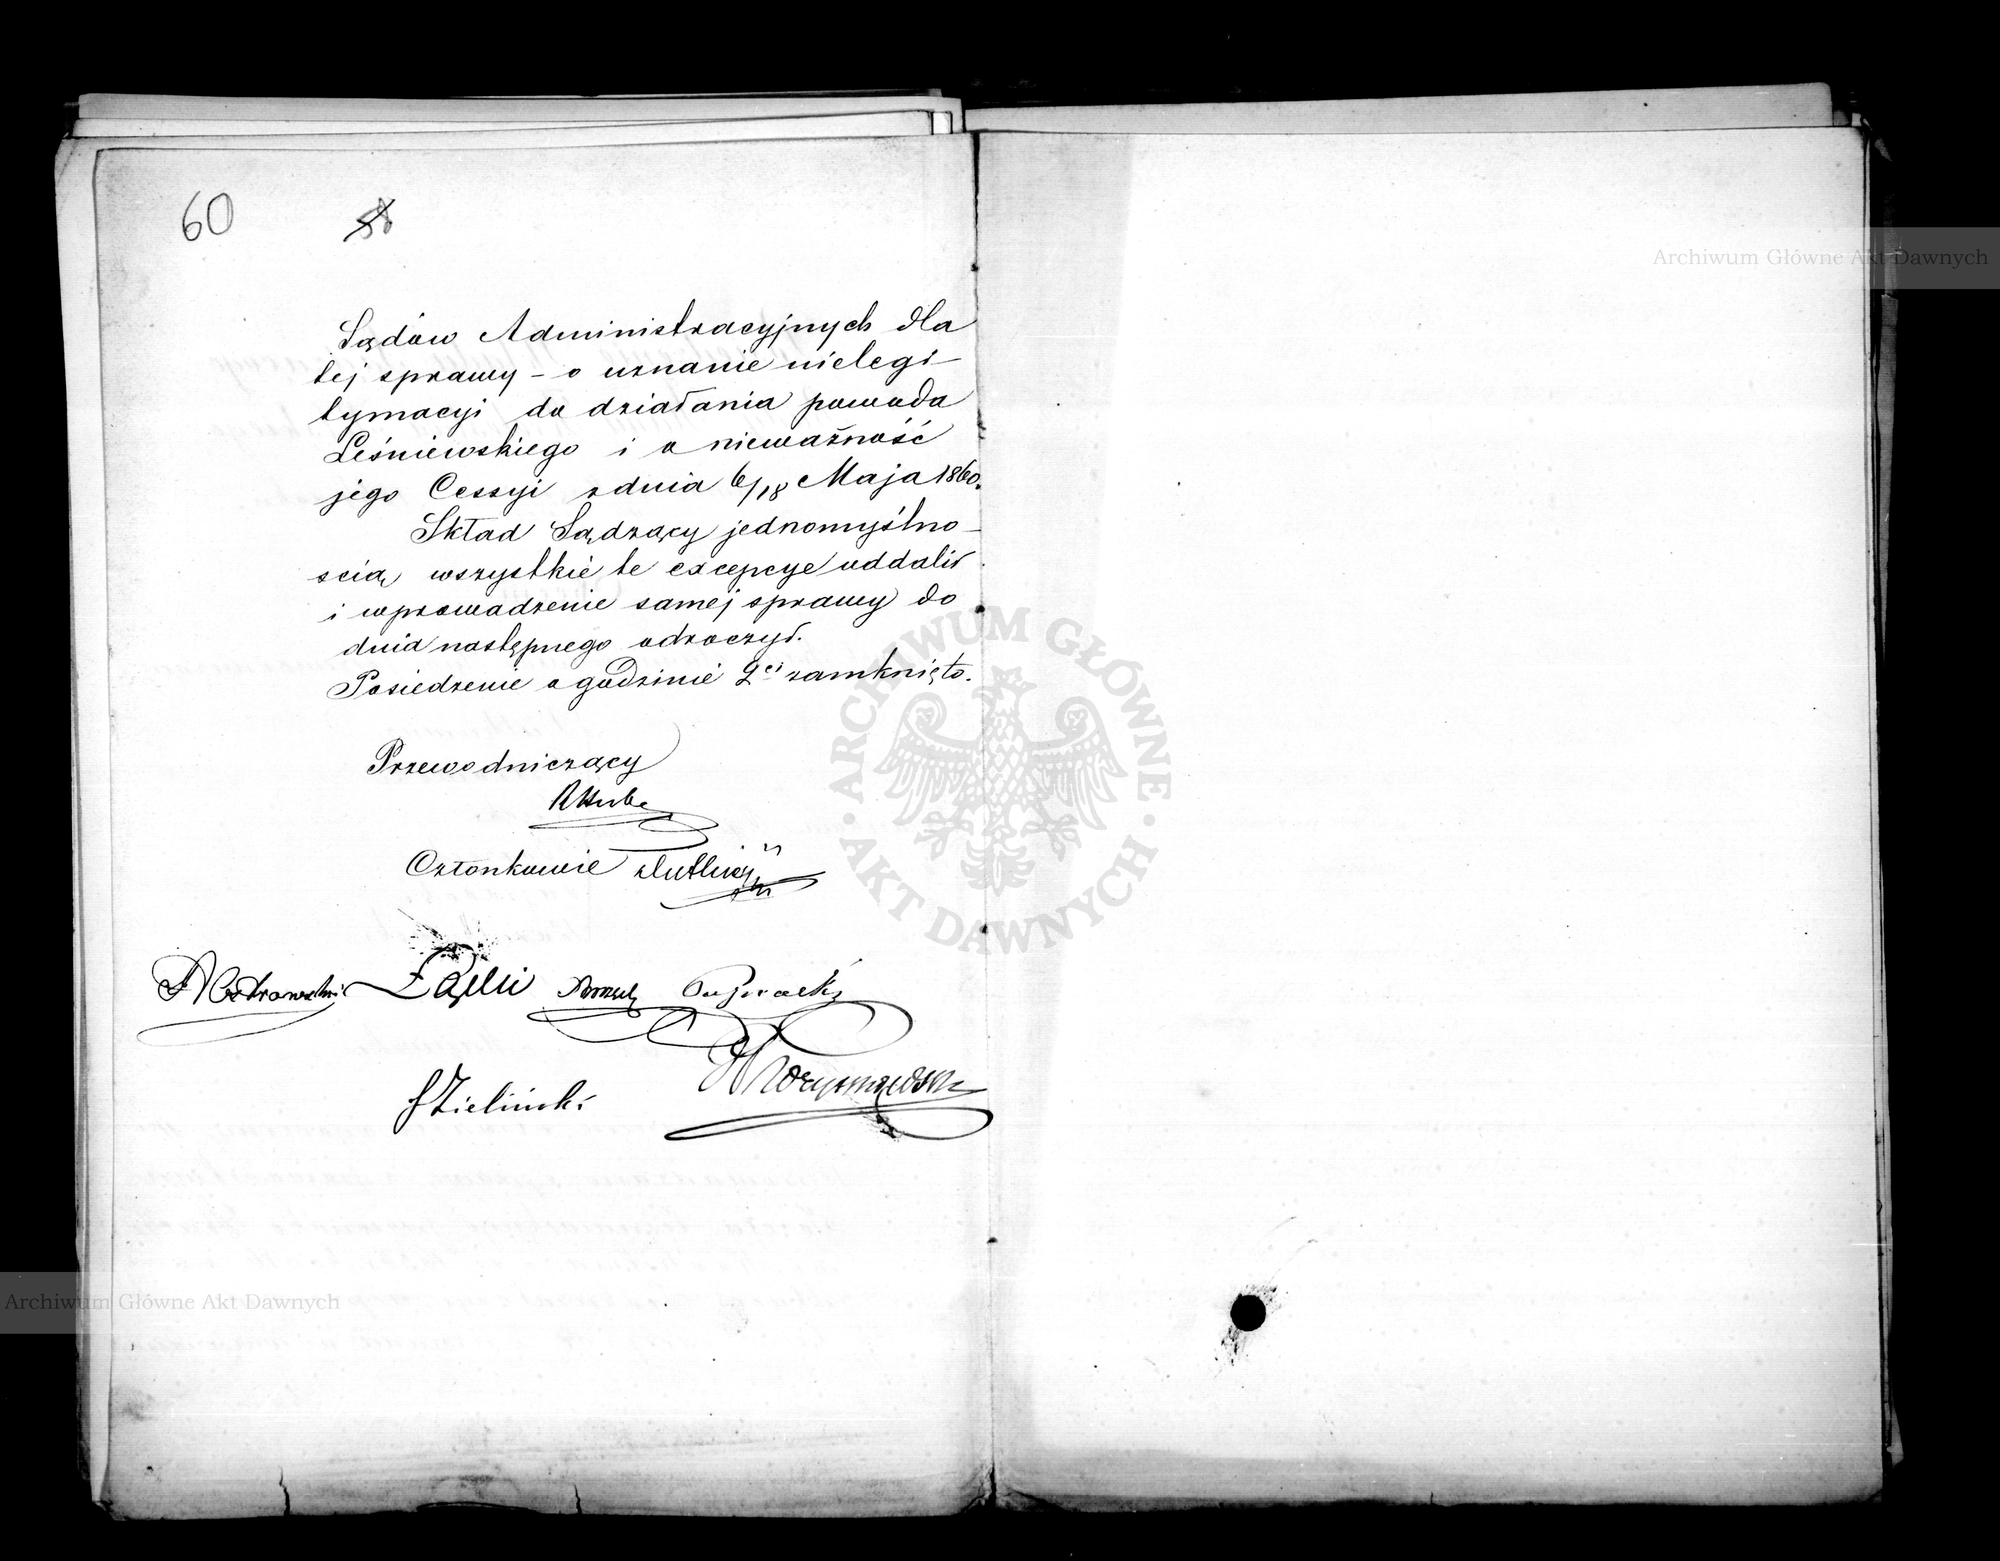 60
Sądów Administracyjnych dla
tej sprawy – o uznanie nielegi-
tymacyi do działania powoda
Leśniewskiego i o nieważność
jego Cessyi z dnia 6/18 Maja 1860.
Skład Sądzący jednomyślno-
scią wszystkie te excepcye oddalił
i wprowadzenie samej sprawy do
dnia następnego odroczył.
Posiedzenie o godzinie 2ej zamknięto.
Przewodniczący
RHube
Członkowie
SZieliński
Archiwum Główne Akt Dawnych
ARCHIWUM GŁÓWNE · AKT DAWNYCH ·
Archiwum Główne Akt Dawnych